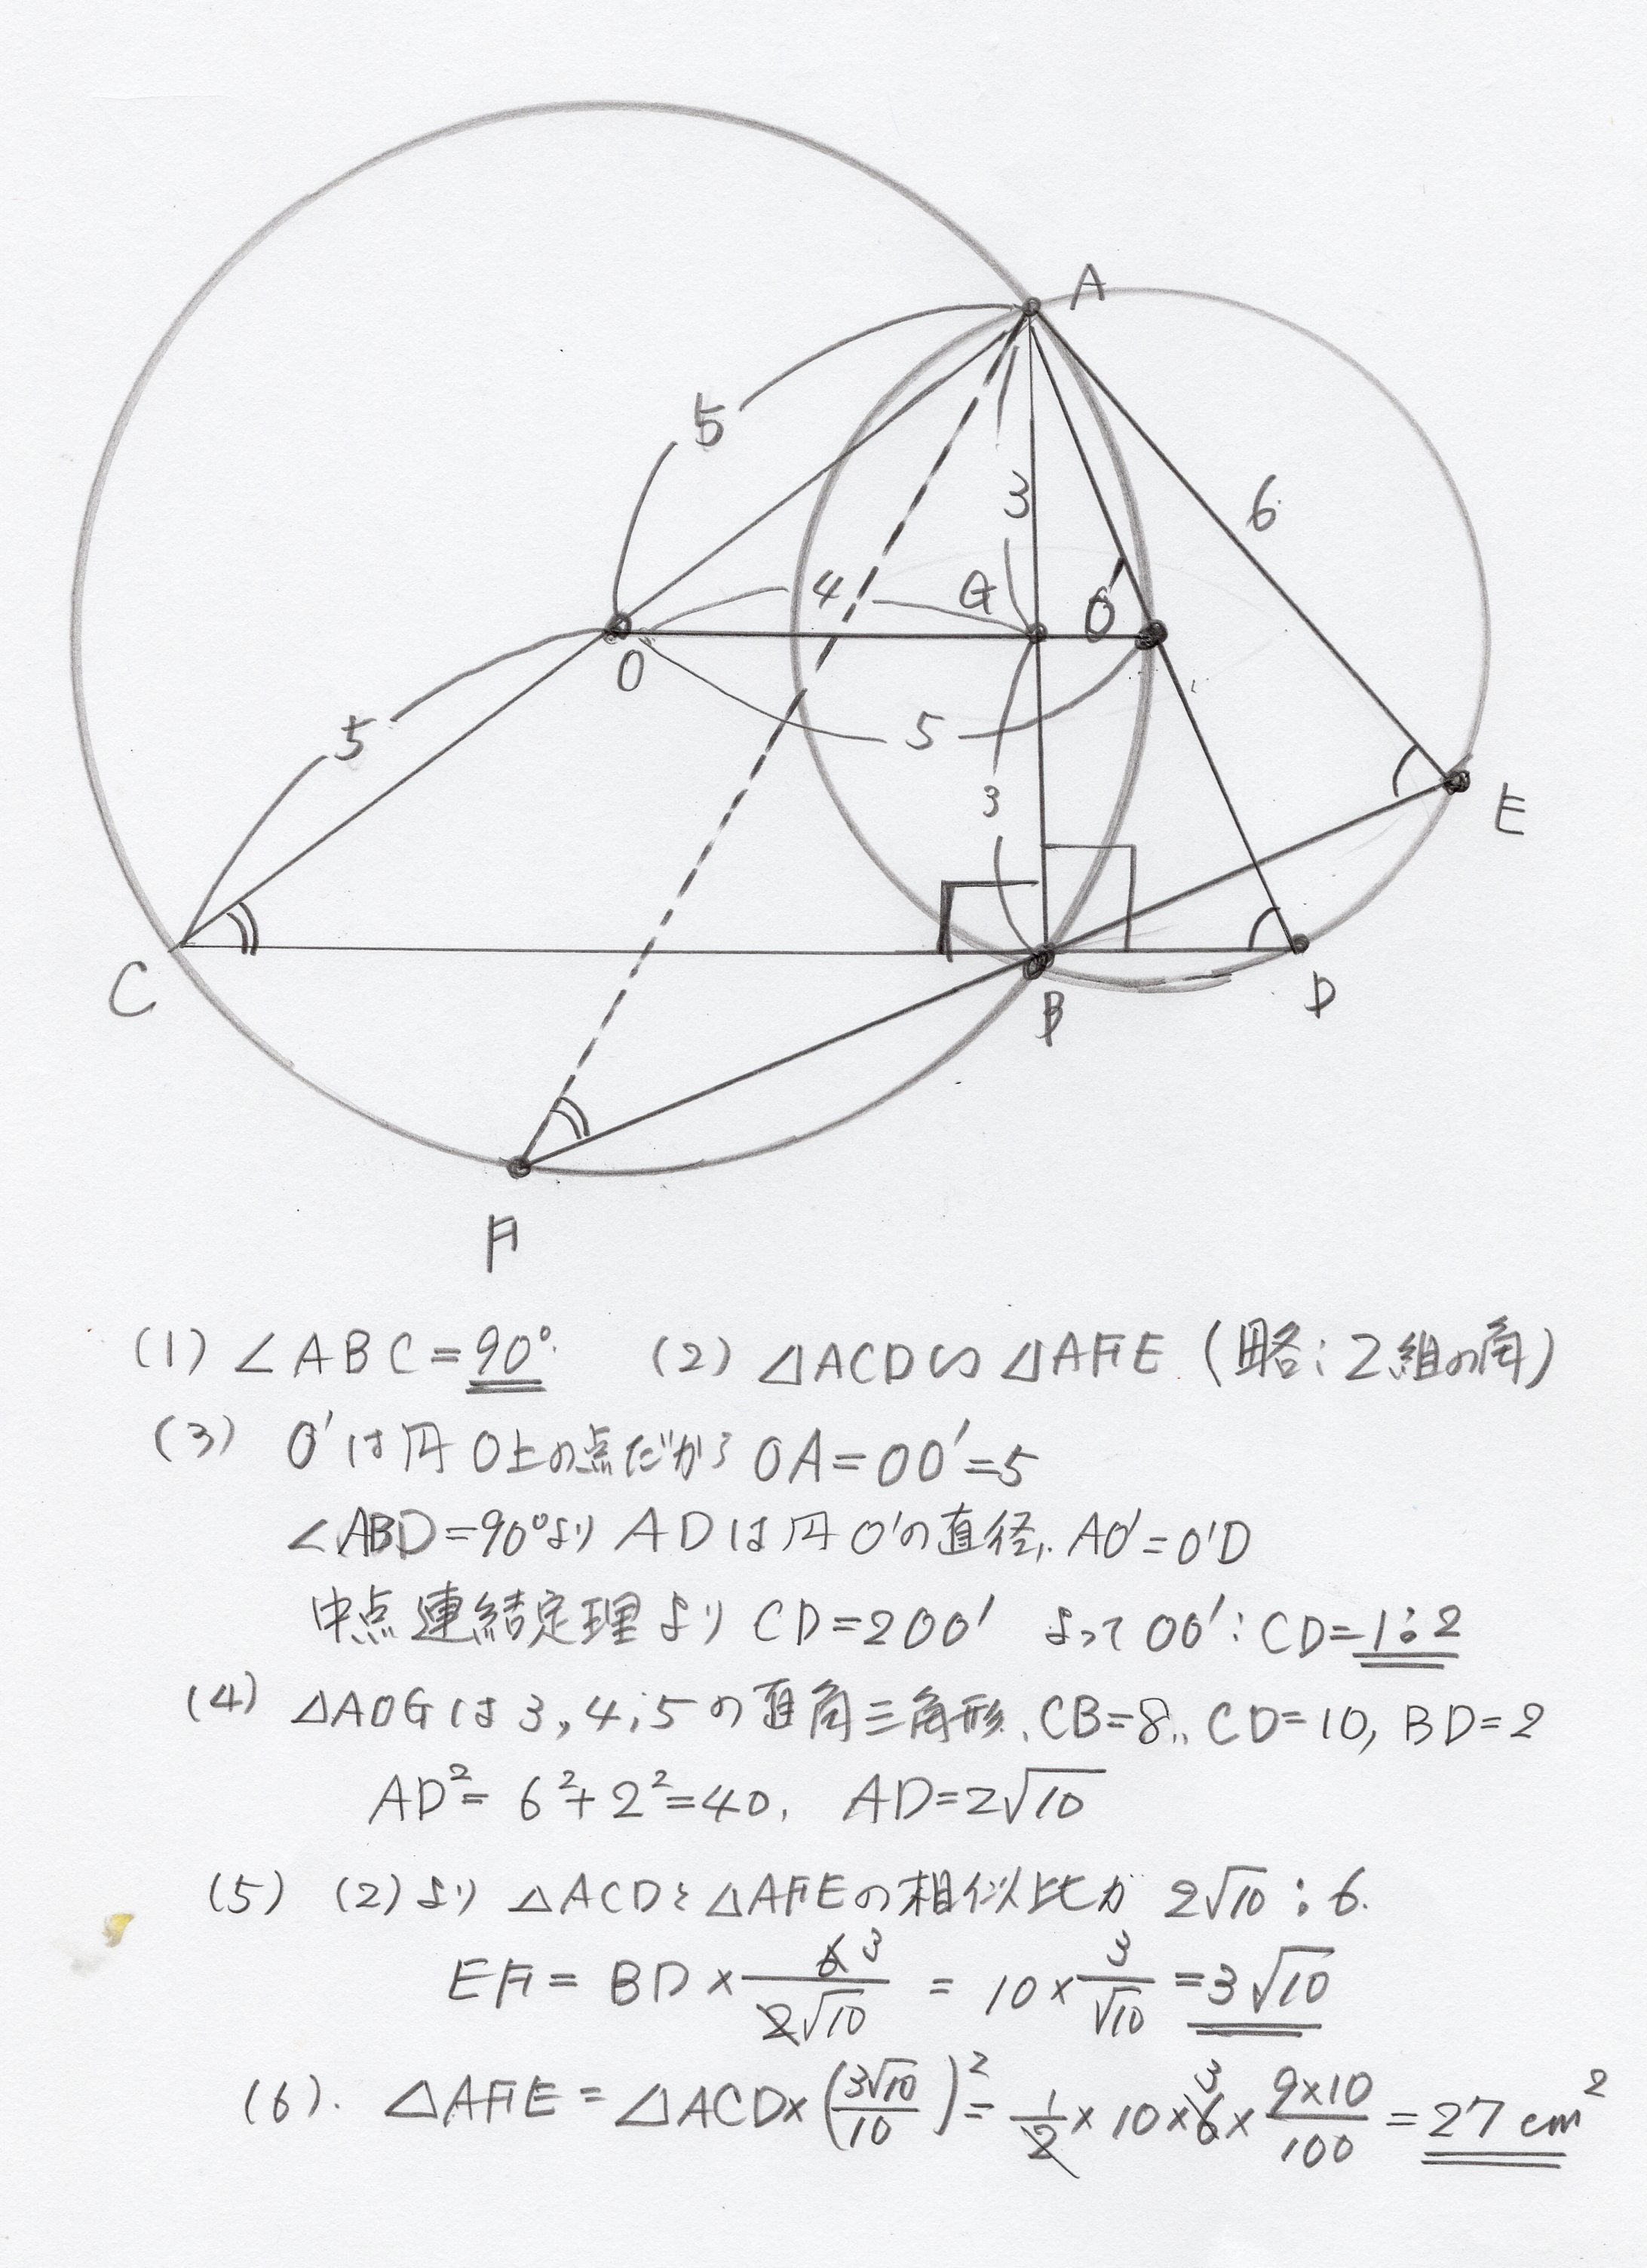 A
5
3
6
4
G
O'
O
5
5
3
E
C
B
D
F
(1) ∠ABC=90° (2) △ACD∽△AFE (略:2組の角)
(3) O'は円O上の点だから OA=OO'=5
∠ABD=90°より ADは円O'の直径. AO'=O'D
中点連結定理より CD=2OO' よって OO':CD=1:2
(4) △AOGは3,4,5の直角三角形. CB=8, CD=10, BD=2
AD²=6²+2²=40, AD=2√10
(5) (2)より △ACDと△AFEの相似比が 2√10:6.
EF=BD×6/2√10 3 = 10×3/√10=3√10
(6). △AFE=△ACD×(3√10/10)²=1/2×10×6×9×10/100=27cm² 3